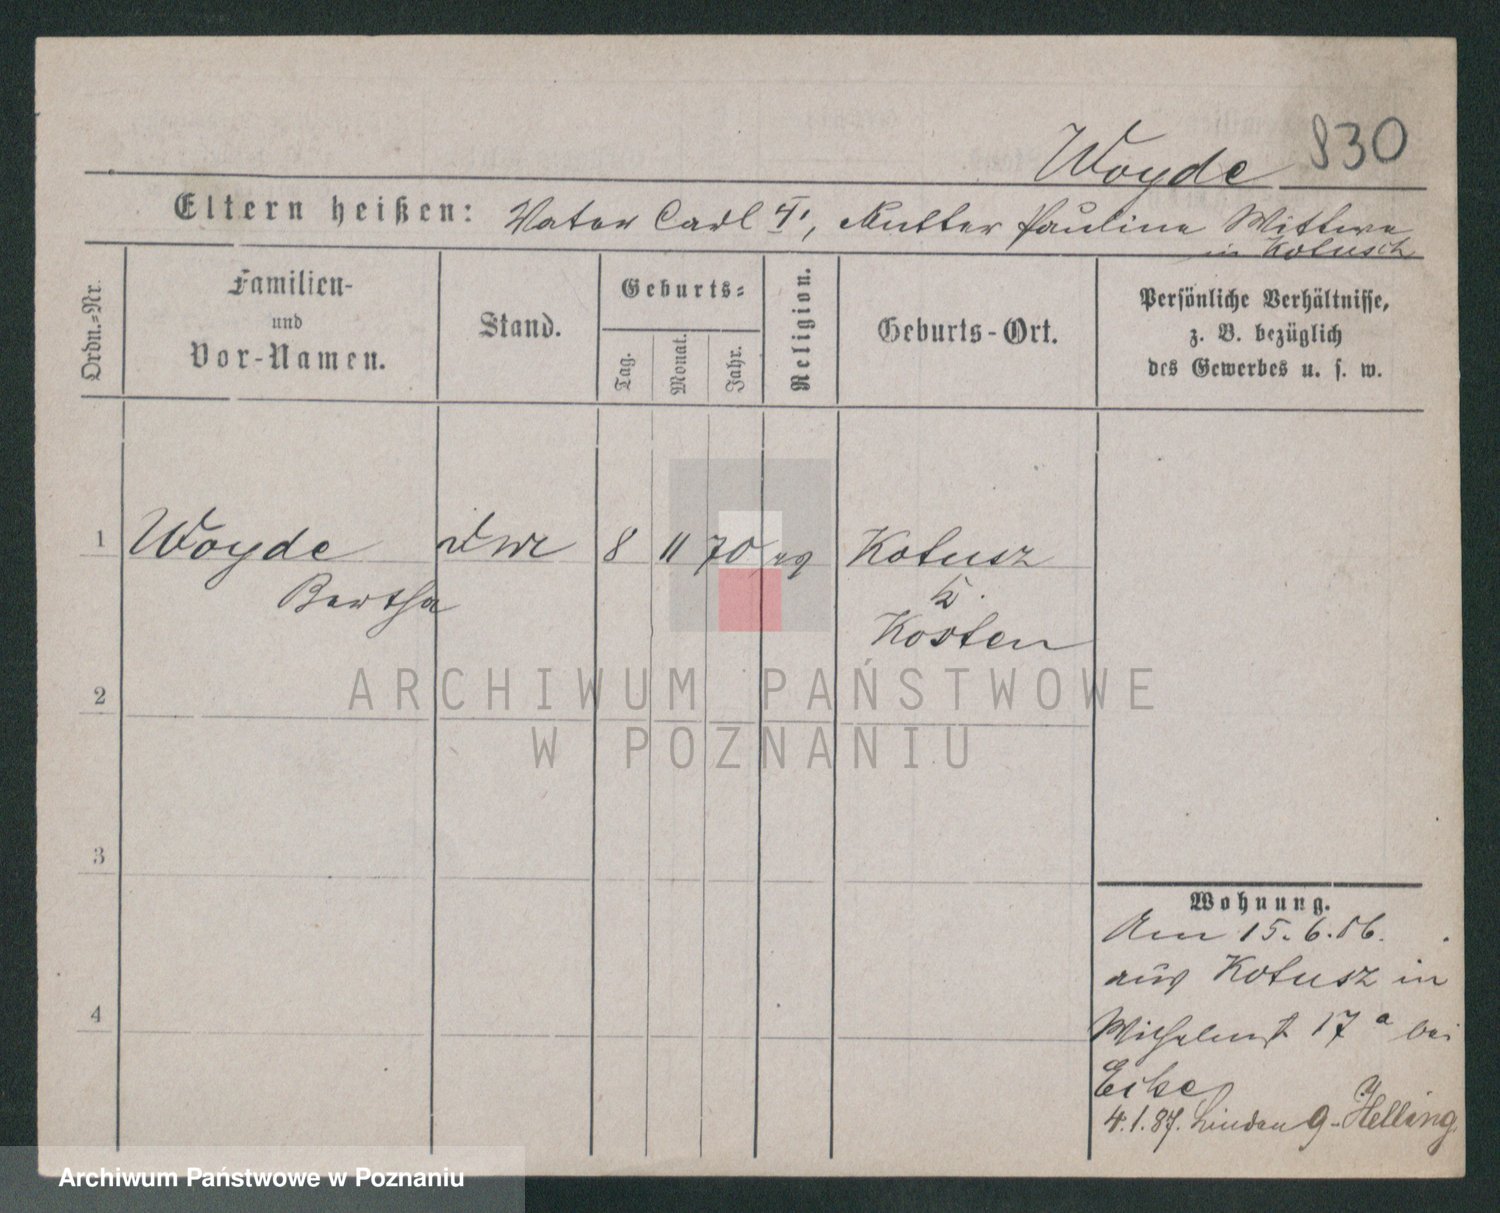 Woyde 830
Eltern heißen: Vater Carl †, Mutter Pauline Wittwe
in Kotusch
Ordn.-Nr.
Familien-
und
Vor-Namen.
Stand.
Geburts-
Tag.
Monat.
Jahr.
Religion.
Geburts-Ort.
Persönliche Verhältnisse,
z. B. bezüglich
des Gewerbes u. s. w.
1 Woyde 8 11 70 Kotusz
Bertha
Kosten
2
ARCHIWUM PAŃSTWOWE
W POZNANIU
3
Wohnung.
Am 15.6.86.
aus Kotusz in
4
Wilhelmst 17a bei
4.1.87. Linden 9 - Helling
Archiwum Państwowe w Poznaniu